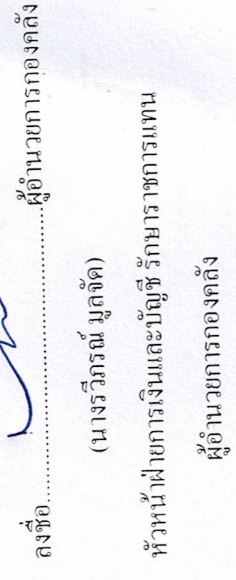 ลงชื่อ........................................ผู้อำนวยการกองคลัง
(นางรวิภรณ์ มูลจัด)
หัวหน้าฝ่ายการเงินและบัญชี รักษาราชการแทน
ผู้อำนวยการกองคลัง